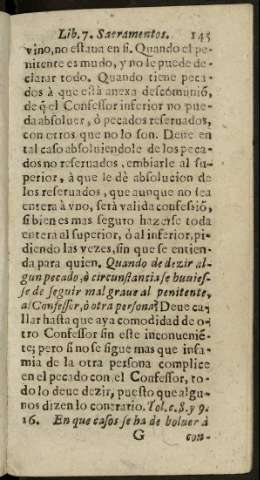 Lib. 7. Sacramentos. 145
vino, no estaua en si. Quando el pe-
nitente es mudo, y no le puede de-
clarar todo. Quando tiene peca-
dos à que està anexa descomunió,
de q̃ el Confessor inferior no pue-
da absoluer, ò pecados reseruados,
con otros que no lo son. Deue en
tal caso absoluiendole de los peca-
dos no reseruados, embiarle al su-
perior, à que le dè absolucion de
los reseruados, que aunque no sea
entera à vno, serà valida confessió,
si bien es mas seguro hazerse toda
entera al superior, ò al inferior, pi-
diendo las vezes, sin que se entien-
da para quien. Quando de dezir al-
gun pecado, ò circunstancia se huuies-
se de seguir mal graue al penitente,
al Confessor, ò otra persona? Deue ca-
llar hasta que aya comodidad de o-
tro Confessor sin este inconuenié-
te; pero si no se sigue mas que infa-
mia de la otra persona complice
en el pecado con el Confessor, to-
do lo deue dezir, puesto que algu-
nos dizen lo contratio. Tol. c. 8. y 9.
16. En que casos se ha de boluer à
G con-